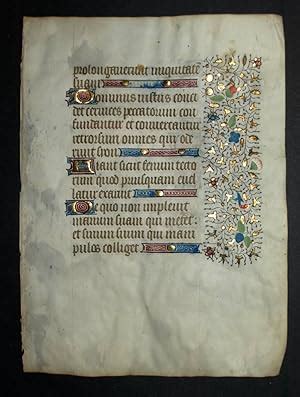 prolongaverunt iniquitate
suam
Dominus iustus conci
det cervices peccatorum con
fundantur et convertantur
retrorsum omnes qui ode
runt syon
Fiant sicut fenum tecto
rum quod priusquam evel
latur exaruit
De quo non implevit
manum suam qui metet:
et sinum suum qui mani
pulos colliget